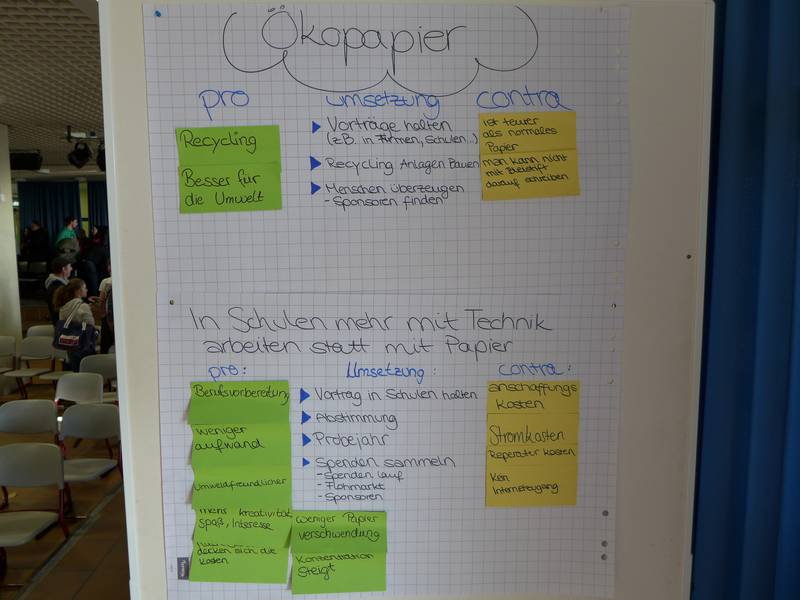 Ökopapier
pro
Recycling
Besser für
die Umwelt
Umsetzung
Vorträge halten
(z.B. in Firmen, Schulen..)
Recycling Anlagen Bauen
Menschen überzeugen
- Sponsoren finden
contra
ist teurer
als normales
Papier
man kann nicht
mit Bleistift
darauf schreiben
In Schulen mehr mit Technik
arbeiten statt mit Papier
pro:
Berufsvorbereitung
weniger
aufwand
Umweltfreundlicher
mehr kreativität,
Spaß, Interesse
decken sich die
Kosten
weniger Papier
verschwendung
Konzentration
steigt
Umsetzung:
Vortrag in Schulen halten
Abstimmung
Probejahr
Spenden sammeln
- Spenden lauf
- Flohmarkt
- Sponsoren
contra:
anschaffungs
kosten
Stromkosten
Reperatur kosten
Kein
Internetzugang